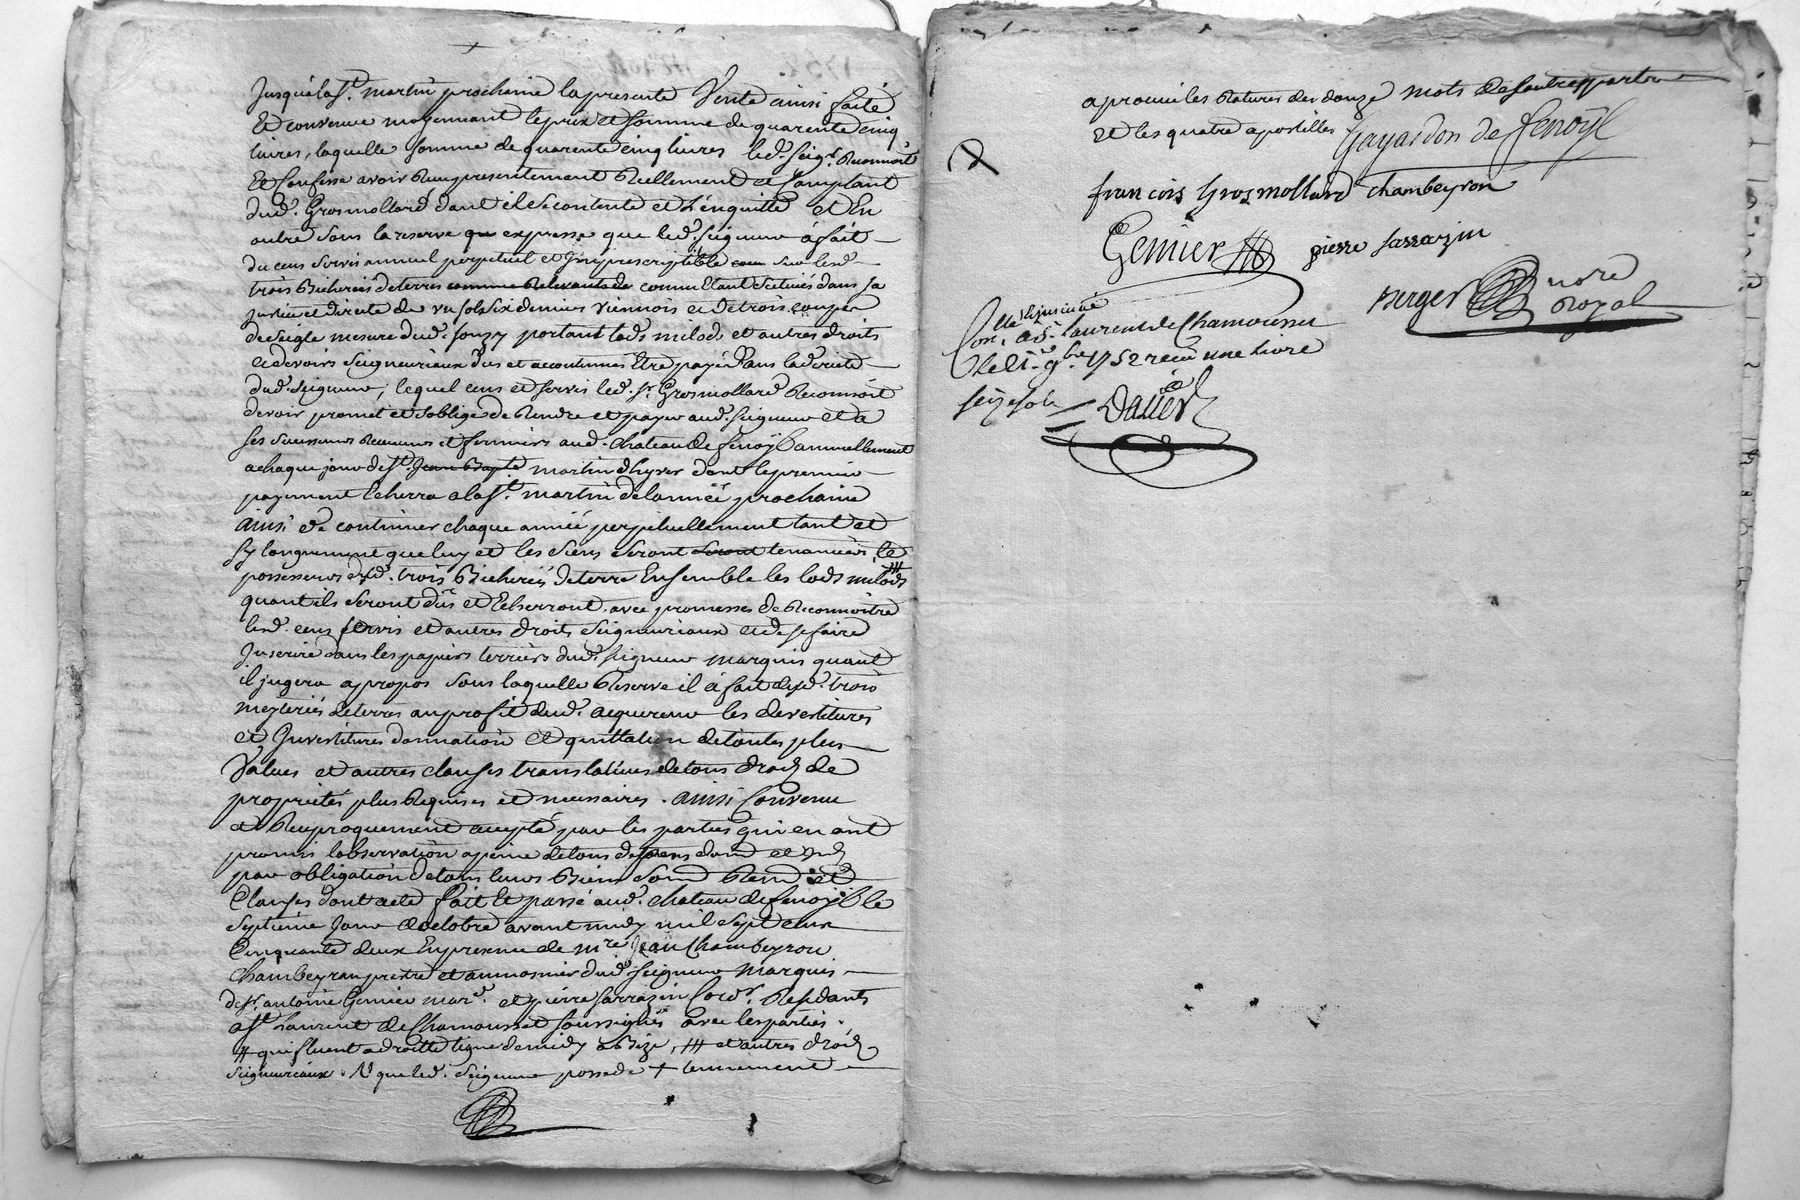 Jusqu'a la st. martin prochaine la presente Vente ainsi faite
Et convenue moyennant le prix et somme de quarente cinq
livres, laquelle somme de quarente cinq livres led. seigr. Reconnoit
Et Confesse avoir Reçu presentement Reellement et Comptant
dud. Grosmollard dont il se contente et l'enquitte et En
outre sous la reserve que expresse que led. seigneur à fait
du cens servis annuel perpetuel et Jmprescriptible sur lesd.
trois Bicherées de terres comme Relevantes de comme Etant scituées dans sa
justice et directe de un sols six deniers viennois et de trois coupes
de seigle mesure dud. souzy portant lods milods et autres droits
et devoirs seigneuriaux dus et accoutumés Etre payés dans la directe
dud. seigneur, lequel cens et servis led. sr. Grosmollard Reconnoit
devoir promet et s'oblige de Rendre et payer aud. seigneur et a
ses successeurs Receveurs et fermiers aud. chateau de fenoÿl annuellement
a chaque jour de st. Jean Bapte martin d'hyver dont le premier
payement Echerra a la st. martin de l'année prochaine
ainsi de continuer chaque année perpetuellement tant et
sy longuement que luy et les siens seront seront tenanciers, et
possesseurs desd. trois Bicherées de terre Ensemble les lods milods
quant ils seront dûs et Echerront, avec promesses de Reconnoitre
lesd. cens servis et autres droits seigneuriaux et de se faire
Jnscrire dans les papiers terriers dud. seigneur marquis quant
il jugera a propos sous laquelle Reserve il à fait desd. trois
mezterées de terres au profit dud. acquereur les devestitures
et Jnvestitures donnation et quittation de toutes plus
Values et autres clauses translatives de tous droits de
proprietés plus Requises et necessaires. ainsi Convenu
et Reciproquement accepté par les parties qui en ont
promis l'observation a peine de tous depens dom. et Jnd.
par obligation de tous leurs Biens Soum. Renon. et
Clauses dont acte fait Et passé aud. chateau de fenoÿl le
septieme Jour d'octobre avant midy mil sept cens
Cinquante deux En presence de mre Jean Chambeyron
Chambeyran prestre et aumosnier dud. seigneur Marquis
de sr. antoine Genier mard. et pierre sarrazin Cord. Residants
a st. Laurent de Chamousset soussignés avec les parties.
# qui fluent a droitte ligne de midy a Bize, ### et autres droits
seigneuriaux. N que led. seigneur possede + tennement
aprouvé les Ratures des douze mots de l'autre part
Et les quatre apostilles Gayardon de fenoÿl
françois Grosmollard Chambeyron
Genier pierre sarrazin
Berger nore Royal
Con. a St. Laurent de Chamousset
le 21 9bre 1752 reçu une livre
seize sols